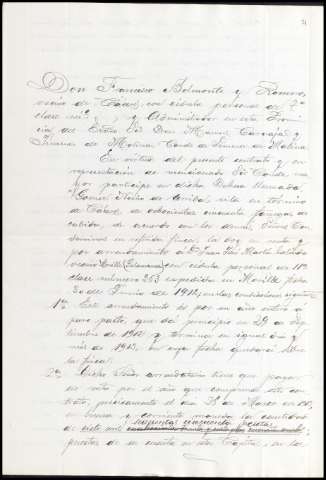 Don Francisco Belmonte y Romero,
vecino de Cáceres, con cédula personal de 7ª
clase nº y Administrador en esta Provin
cia del Excmo Sor Don Manuel Carvajal y
de Molina Conde de
En virtud del presente contrato y en
representación de mencionado Sor Conde ma
yor participe en dicha Dehesa llamada
de Arriba, sita en término
de Cáceres, de ochocientas cincuenta fanegas de
cabida, de acuerdo con los demás Señores Con
dominos en referida finca la doy en renta y
por arrendamiento a Dn Juan José Martin
vecino con cédula personal de 11ª
clase número 253 expedida en fecha
30 de Junio de 1912, en las condiciones siguientes
1ª Este arrendamiento es por un año entero a
puro pasto, que da principio en 29 de Sep
tiembre de 1912 y termina en igual día y
mes de 1913, en cuya fecha quedará libre
la finca.
2ª Dicho Señor arrendatario tiene que pagar
de renta por el año que comprende este con
trato, precisamente el día 15 de Marzo de 1913,
en buena y corriente moneda la cantidad
de siete mil cincuenta pesetas
puestas de su cuenta en esta Capital, en la